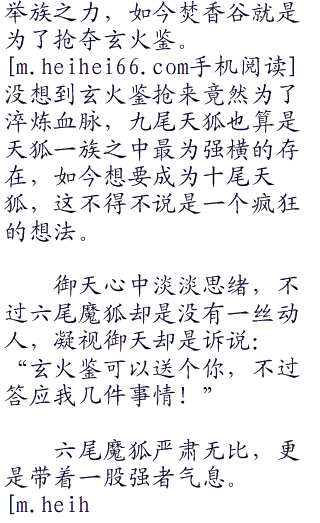 举族之力，如今焚香谷就是
为了抢夺玄火鉴。
[m.heihei66.com手机阅读]
没想到玄火鉴抢来竟然为了
淬炼血脉，九尾天狐也算是
天狐一族之中最为强横的存
在，如今想要成为十尾天
狐，这不得不说是一个疯狂
的想法。
御天心中淡淡思绪，不
过六尾魔狐却是没有一丝动
人，凝视御天却是诉说：
“玄火鉴可以送个你，不过
答应我几件事情！”
六尾魔狐严肃无比，更
是带着一股强者气息。
[m.heih